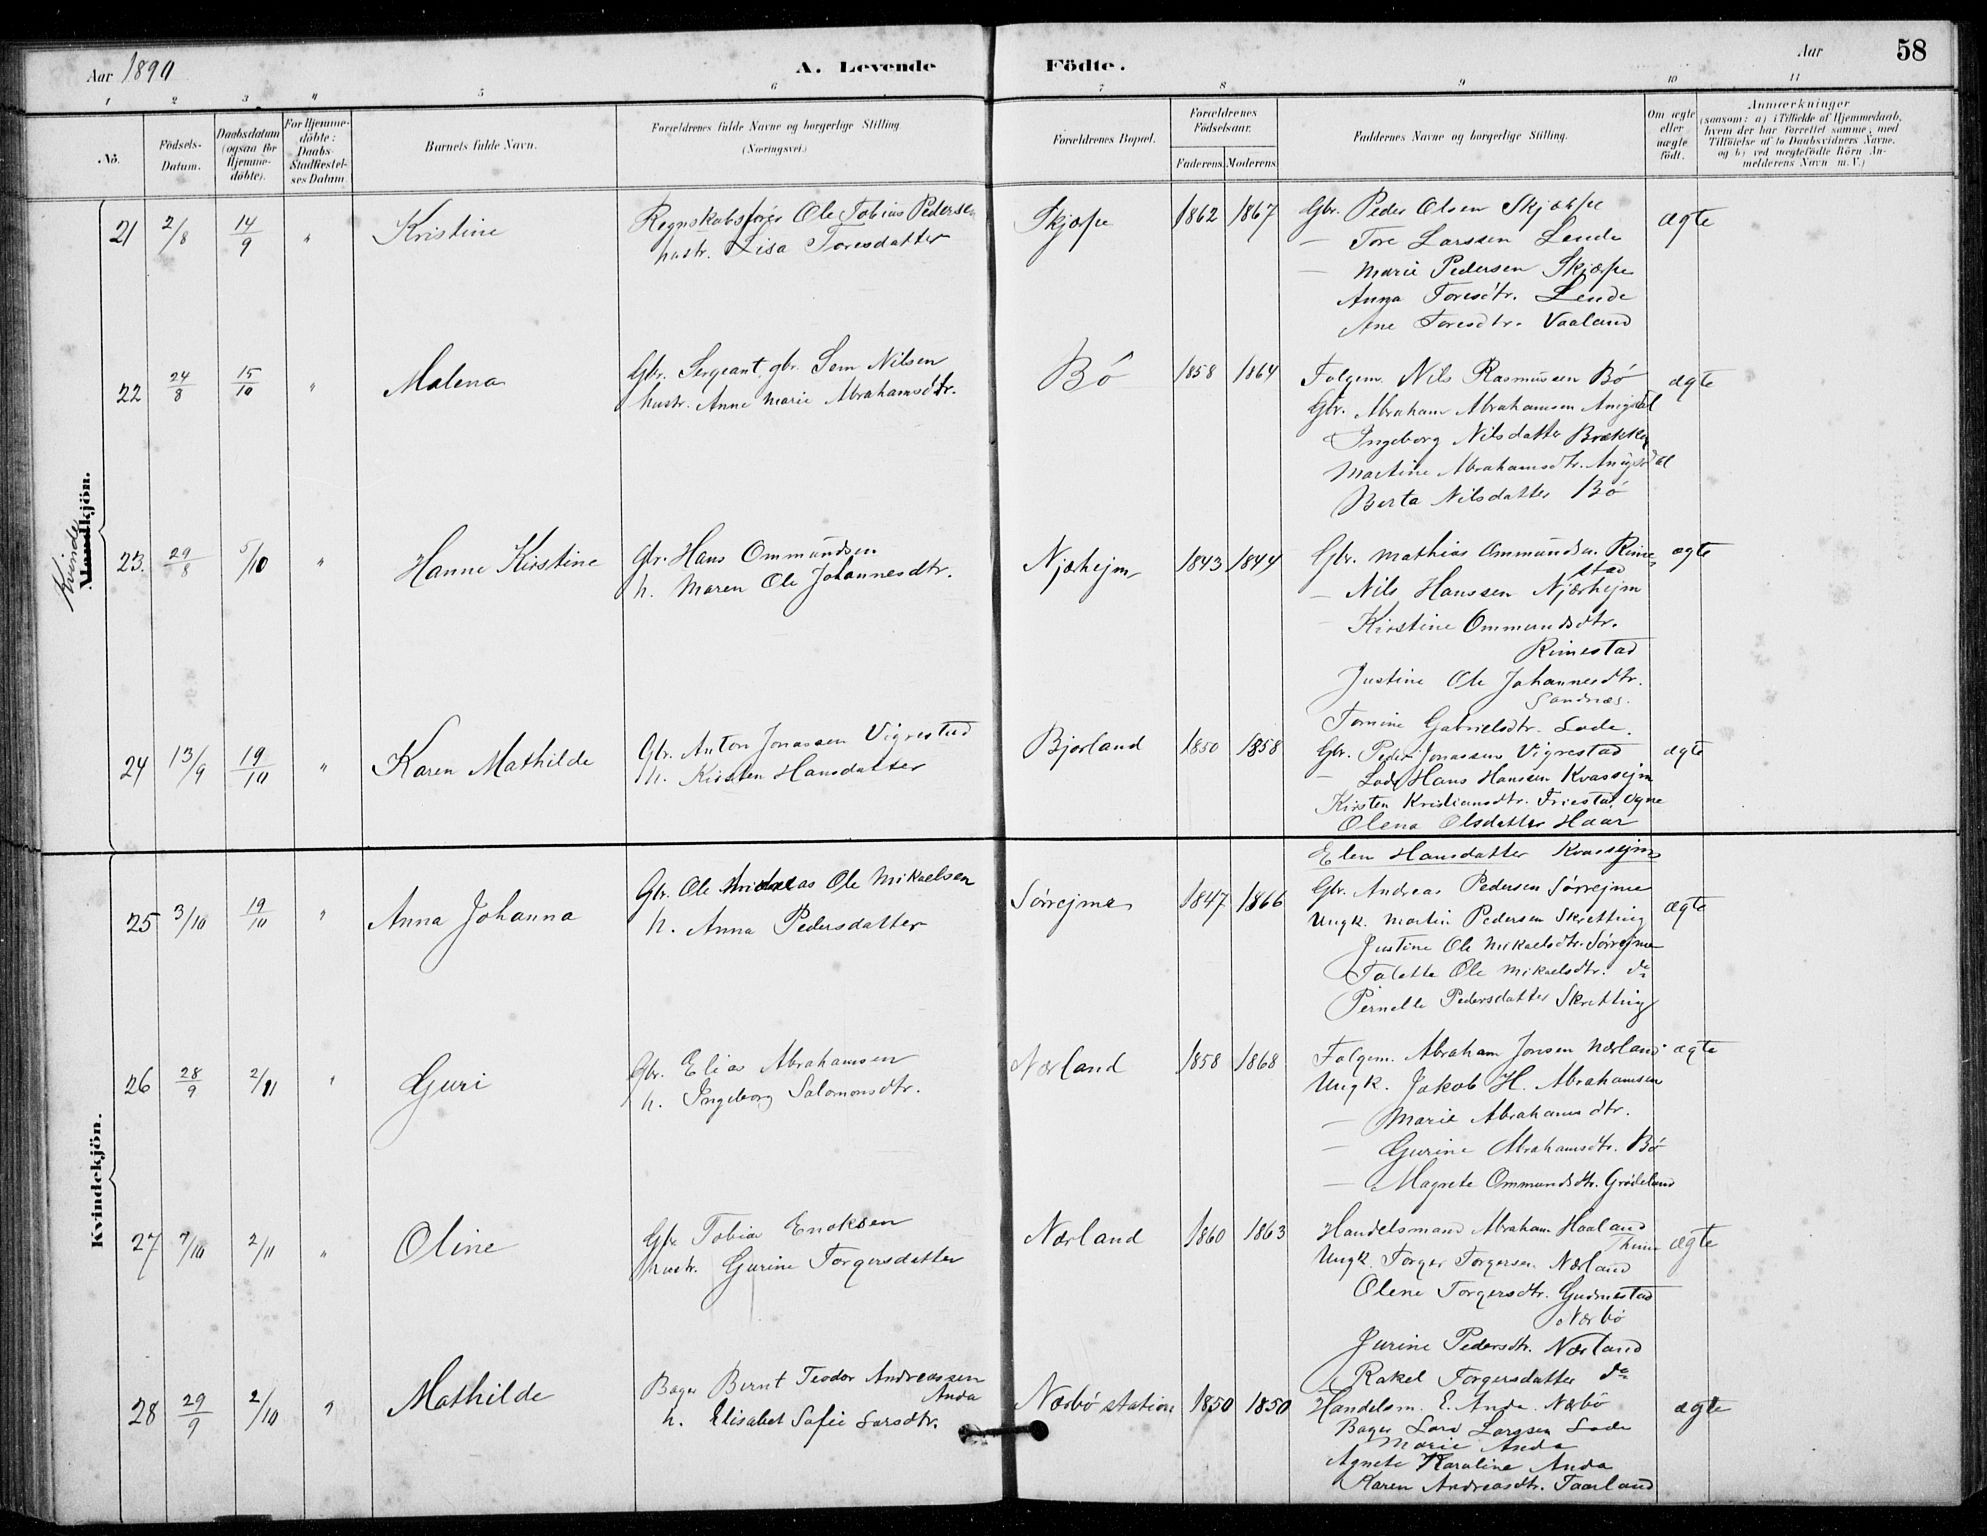 Aar 1890
A. Levende Födte.
Aar
58
1 2 3 4 5 6 7 8 9 10 11
No.
Födsels-Datum.
Daabsdatum (ogsaa for Hjemme-döbte).
For Hjemme-döbte: Daabs-Stadfæstel-ses Datum.
Barnets fulde Navn.
Forældrenes fulde Navne og borgerlige Stilling (Næringsvei.)
Forældrenes Bopæl.
Forældrenes Födselsaar.
Faderens. Moderens.
Faddernes Navne og borgerlige Stilling.
Om ægte eller uægte födt.
Anmærkninger (saasom: a) i Tilfælde af Hjemmedaab, hvem der har forrettet samme, med Tilföielse af to Daabsvidners Navne, og b) ved uægtefödte Börn An-melderens Navn m. V.)
Kvinde
Mandkjön.
21 2/8 14/9 " Kristine
Regnskabsfører Ole Tobias Pedersen
hustr. Lisa Toresdatter
Skjæpe 1862 1867
Gbr. Peder Olsen Skjæpe ægte
— Tore Larssen Lende
— Marie Pedersen Skjæpe
Anna Toresdtr. Lende
Ane Toresdtr. Vaaland
22 24/8 15/10 " Malena
Gbr. Sergeant, gbr. Sem Nilsen
hustr. Anne Marie Abrahamsdtr.
Bö 1858 1864
Folgem. Nils Rasmussen Bö ægte
Gbr. Abraham Abrahamsen
Ingeborg Nilsdatter Brække
Martine Abrahamsdtr.
Berta Nilsdatter Bö
23. 29/8 5/10 " Hanne Kirstine
Gbr. Hans Ommundsen
h. Maren Ole Johannesdtr.
Njærhejm 1843 1844
Gbr. Mathias Ommundsen Rime ægte
stad
— Nils Hanssen Njærhejm
— Kirstine Ommundsdtr.
Rimestad
Justine Ole Johannesdtr.
Sandnæs.
Tomine Gabrielsdtr. Lode.
24 13/9 19/10 " Karen Mathilde
Gbr. Anton Jonassen Vigrestad
h. Kirsten Hansdatter
Bjorland 1850 1858
Gbr. Peder Jonassen Vigrestad ægte
— Lods Hans Hansen Kvassejm
Kirsten Kristiansdtr. Friestad Ogne
Olena Olsdatter Haar
Elen Hansdatter Kvassejm
Kvindekjön.
25 3/10 19/10 " Anna Johanna
Gbr. Ole Mikael Ole Mikaelsen
h. Anna Pedersdatter
Sörrejme 1847 1866
Gbr. Andreas Pedersen Sörrejme ægte
Ungk. Martin Pedersen Skretting
Justine Ole Mikaelsdtr. Sörrejme
Talette Ole Mikaelsdtr. do
Pernelle Pedersdatter Skretting
26 28/9 2/11 " Guri
Gbr. Elias Abrahamsen
h. Ingeborg Salomonsdtr.
Nærland 1858 1868
Folgem. Abraham Jonsen Nærland ægte
Ungk. Jakob H. Abrahamsen
— Marie Abrahamsdtr.
— Gurine Abrahamsdtr. Bö
— Magrete Ommundsdtr. Grödeland
27 7/10 2/11 " Oline
Gbr Tobias Enoksen
hustr. Gurine Torgersdatter
Nærland 1860 1863
Handelsmand Abraham Haaland ægte
Thime
Ungk. Torger Torgersen Nærland
Olene Torgersdtr. Gudmestad
Nærbö
Jurine Pedersdtr. Nærland
Rakel Torgersdatter do
28 29/9 2/10 " Mathilde
Bager Bernt Teodor Andreassen
Anda
h. Elisabet Sofie Larsdtr.
Nærbö station 1850 1850
Handelsm. E. Anda. Nærbö ægte
Bager Lars Larssen Lode
Marie Anda
Agnete Karoline Anda
Karen Andreasdtr. Taarland